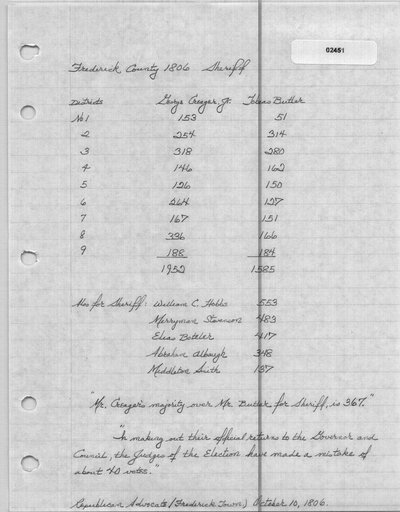 02451
Frederick County 1806 Sheriff
Districts George Creager, Jr. Tobias Butler
No 1 153 51
2 254 314
3 318 280
4 146 162
5 126 150
6 264 127
7 167 151
8 336 166
9 188 184
1952 1585
Also for Sheriff: William C. Hobbs 553
Merryman Stevenson 483
Elias Boteler 417
Abraham Albaugh 348
Middleton Smith 137
"Mr. Creager's majority over Mr. Butler for Sheriff, is 367."
"In making out their official returns to the Governor and
Council, the Judges of the Election have made a mistake of
about 40 votes."
Republican Advocate (Frederick Town) October 10, 1806.